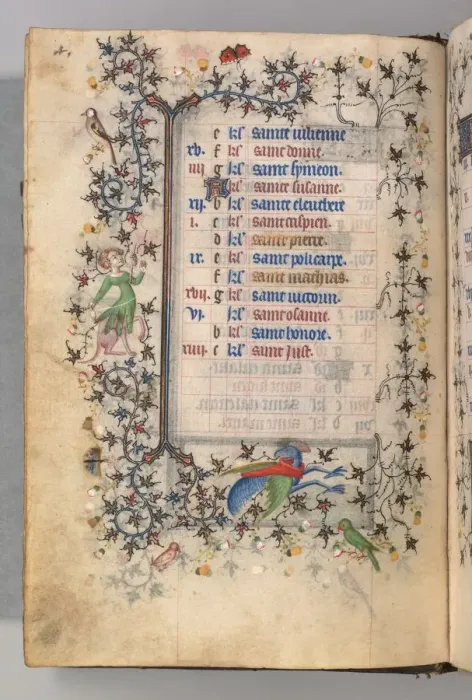 e kl' sainte iulienne
xv. f kl' saint donne.
iiii g kl' saint symeon.
A kl' sainte susanne.
xii. b kl' saint eleuthere
i. c kl' saint crispien.
d kl' saint pierre.
ix. e kl' saint policarpe.
f kl' saint mathias.
xvii. g kl' saint victorin.
vi. kl' saint osanne.
b kl' saint honore.
xiiii. c kl' saint just.